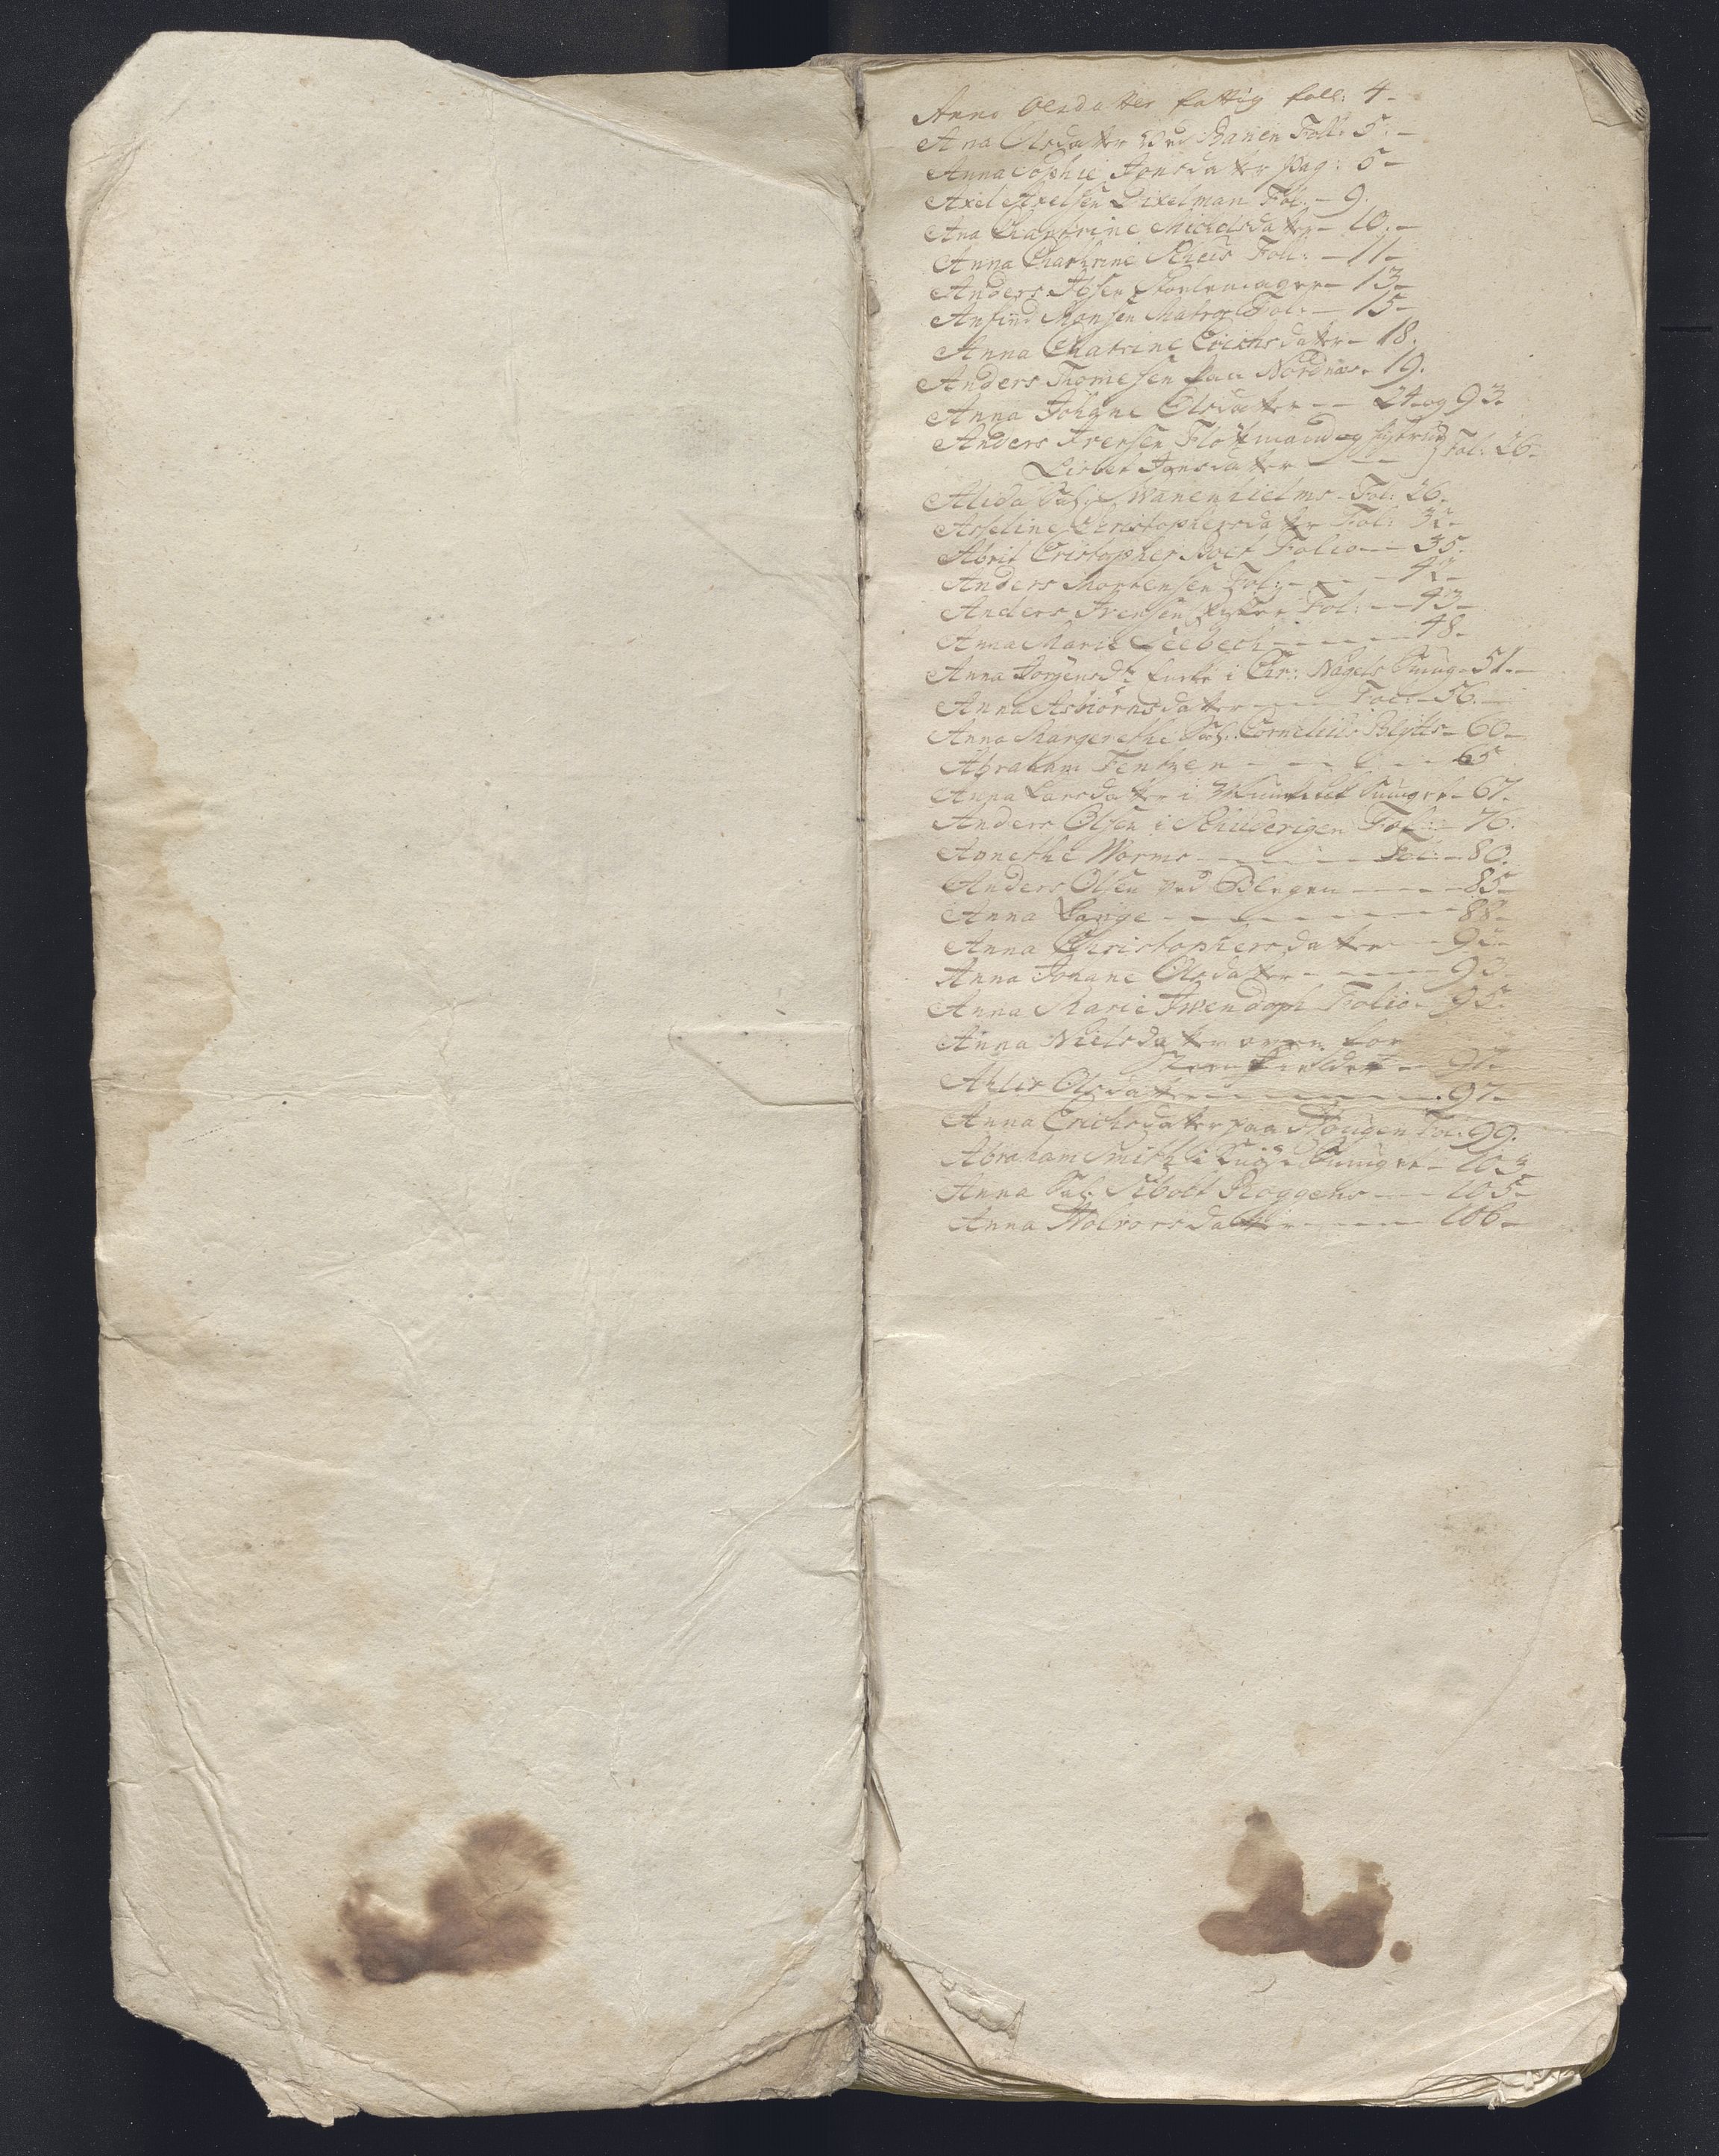 Anne Olsdatter fattig foll: 4-
Ana Olsdatter ved Banen Foll: 5.-
Anna Sophie Jonsdatter pag: 5-
Axel Axelsen Dixelman Fol. - 9.
Ana Chatrine Nichelsdatter- 10.-
Anna Chathrine Scheis Foll: - 11-
Anders Ibsen - 13-
Anfind Monsen Matros Fol: - 15-
Anna Chatrine Erichsdatter- 18.
Anders Thomesen paa Nordnæs- 19.
Anna Johane Olsdatter - - 24 og 93.
Anders Iversen Flotmand og hustrue
Lisbet Jonsdatter - - - } Fol: 26-
Alida Sal: Svanenhielms- Fol: 26.
Aseline Christophersdatter Fol: 32-
Abrit Cristopher Folio - 35.
Anders Mortensen Fol: - - - 42-
Anders Iversen Fol: - 43-
Anna Marie Geebech - - - - 48-
Anna Jorgensdr i Chr: Nagels Smug- 51.-
Anna Asbiørnsdatter - - Fol: - 56.-
Anna Margerethe Sal: Cornelius Blytts- 60-
Abraham Fentzen - - - - 65
Anna Larsdatter i Smuget- 67.
Anders Olsen i Schilderigen Fol: - 76.
Agnethe Worms - - - - Fol: - 80.
Anders Olsen ved Blegen - - - 85-
Anna Lange - - - - - - 88-
Anna Christophersdatter - 92-
Anna Johane Olsdatter - - - - 93-
Anna Marie Fol­io- 95-
Anna Nielsdatter oven for
- 97-
Ahlis Olsdatter - - - - - 97-
Anna Erichsdatter paa Hougen Fol: 99.
Abraham Smith i Smuget- 103
Anna Sal: Sibolt Roggens - - 105-
Anna Holvorsdatter - - - - 106-